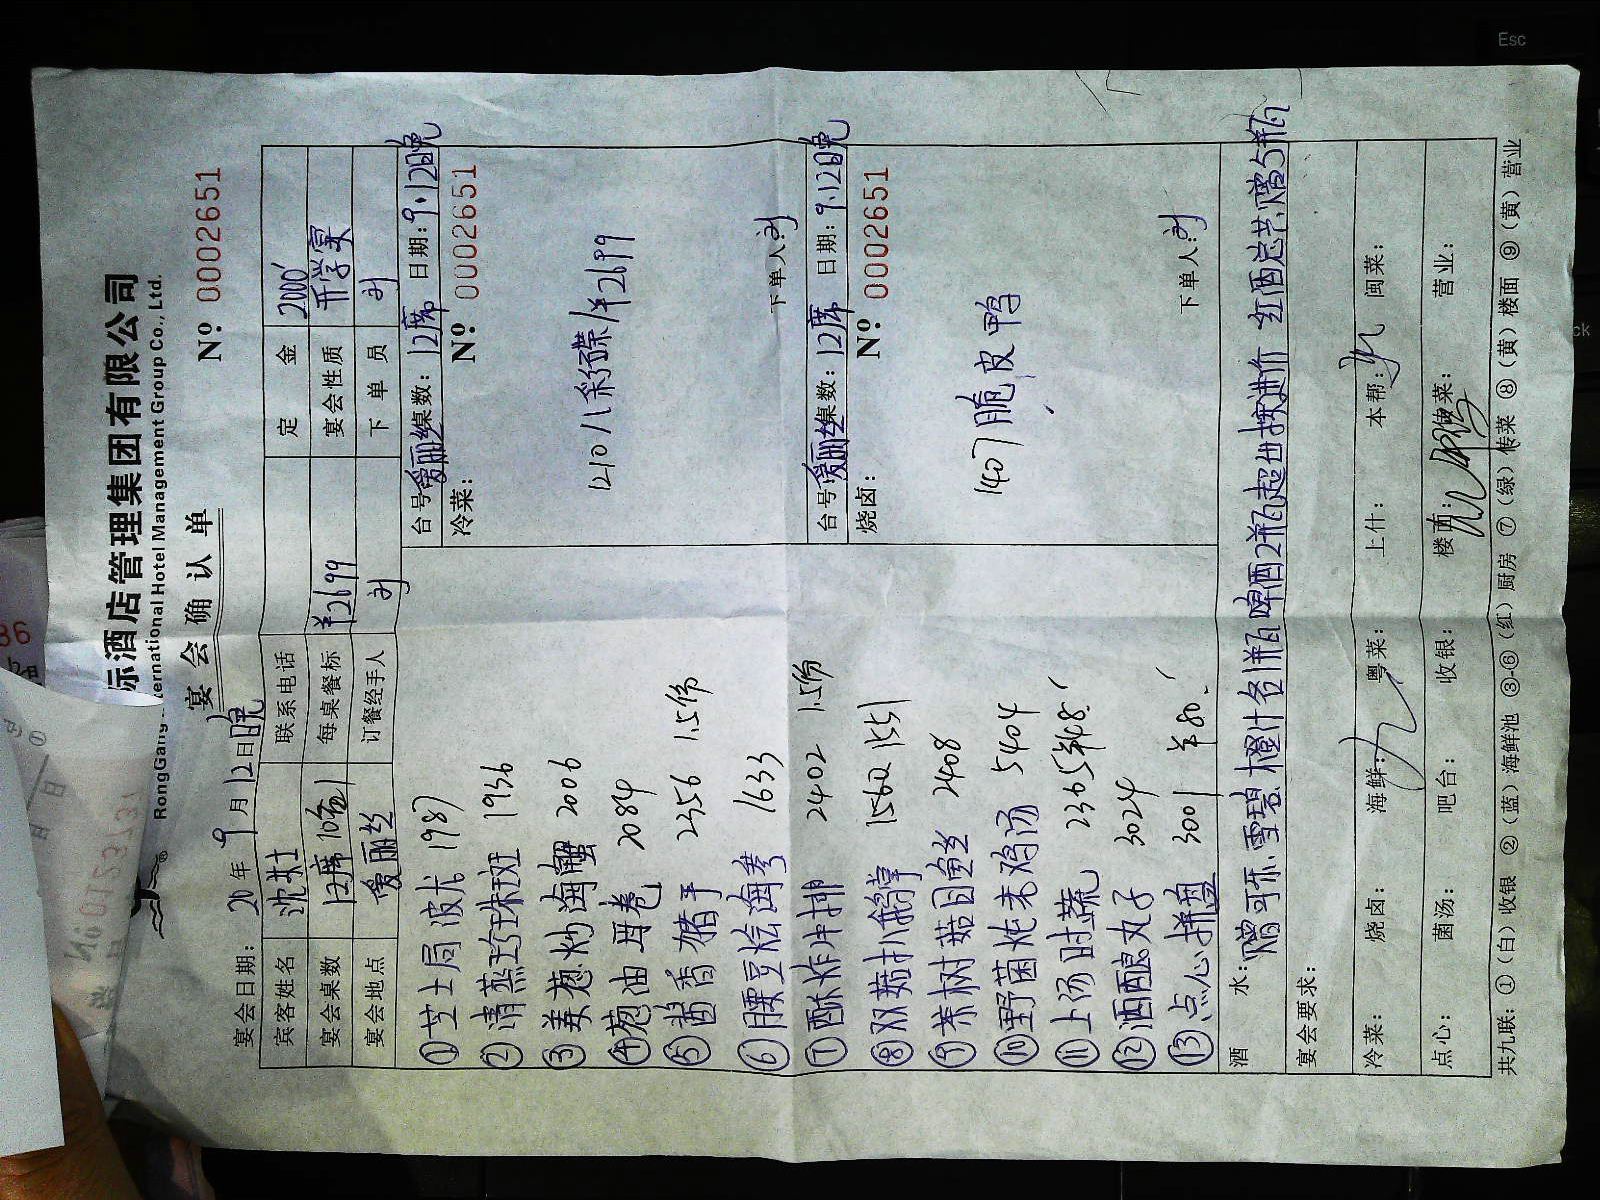 际酒店管理集团有限公司
RongGang International Hotel Management Group Co., Ltd.
宴会确认单
№ 0002651
宴会日期: 20 年 9 月 12 日晚
宾客姓名 沈 联系电话 定金 2000
宴会桌数 12席 每桌餐标 ¥2699 宴会性质 开学宴
宴会地点 爱丽丝 订餐经手人 下单员
台号 爱丽丝 桌数: 12席 日期: 9.12日晚
冷菜: № 0002651
1210 八彩碟/¥2699
下单人:
台号 爱丽丝 桌数: 12席 日期: 9.12日晚
烧卤: № 0002651
1407 脆皮鸭
下单人:
①芝士局波龙 1987
②清蒸珍珠斑 1936
③姜葱炒海蟹 2006
④葱油耳卷 2084
⑤酱香猪手 2356 1.5份
⑥腰豆烩海参 1633
⑦酥炸牛排 2402 1.5份
⑧双菇扒鹅掌 1560 1551
⑨茶树菇目鱼丝 2408
⑩野菌炖老鸡汤 5404
⑪上汤时蔬 2365 ¥48.
⑫酒酿丸子 3024
⑬点心拼盘 3001 ¥80.
酒水: 赠可乐雪碧橙汁各1瓶啤酒2瓶超出按进价 红酒总共赠5瓶
宴会要求:
冷菜: 烧卤: 海鲜: 粤菜: 上什: 本帮: 闽菜:
点心: 菌汤: 吧台: 收银: 楼面: 传菜: 营业:
共九联: ①(白)收银 ②(蓝)海鲜池 ③-⑥(红)厨房 ⑦(绿)传菜 ⑧(黄)楼面 ⑨(黄)营业
Esc